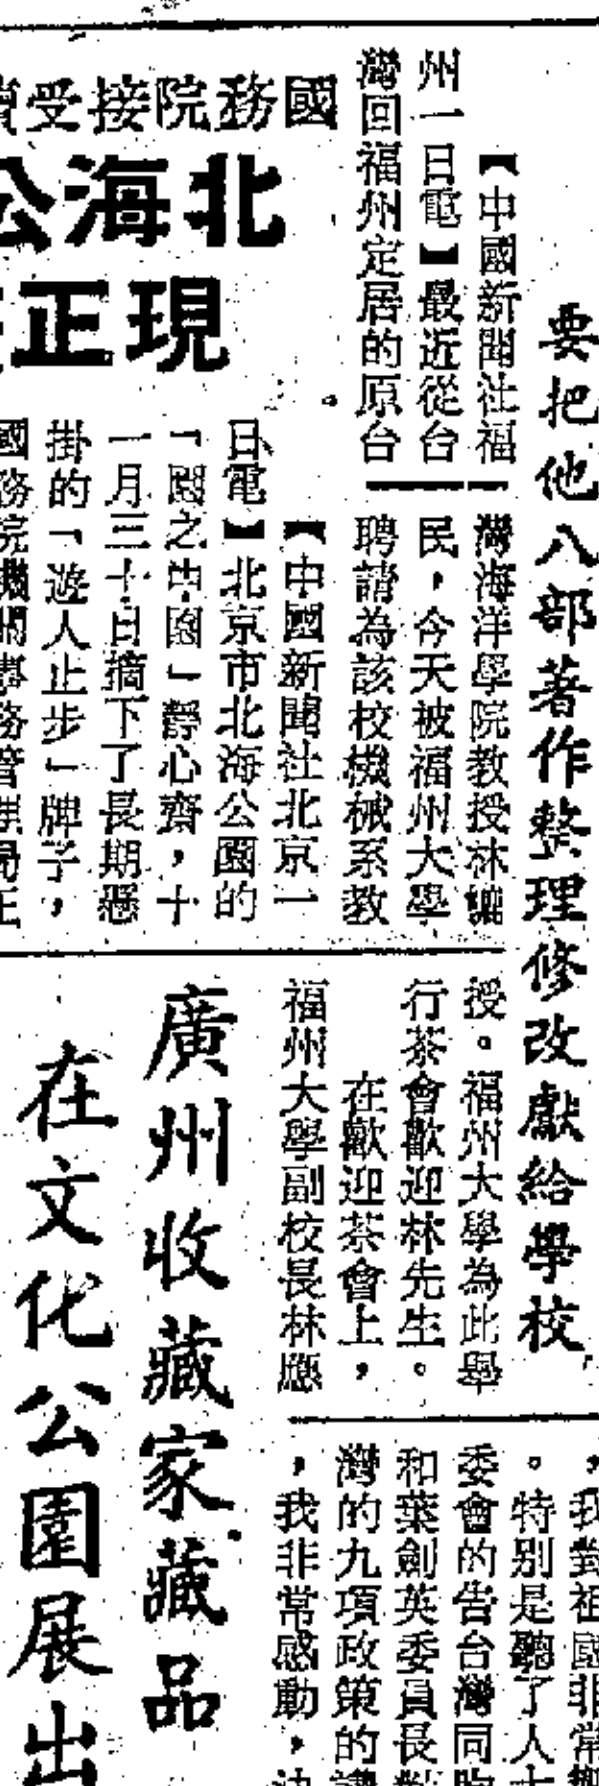 要把他八部著作整理修改獻給學校
【中國新聞社福
州一日電】最近從台
灣回福州定居的原台
灣海洋學院教授林
民，今天被福州大學
聘請為該校機械系教
授。福州大學為此舉
行茶會歡迎林先生。
在歡迎茶會上，
福州大學副校長林應
，我對祖國非常
。特別是聽了人大
委會的告台灣同胞
和葉劍英委員長對
灣的九項政策的講
，我非常感動，決
國務院接受
北海公
現正
【中國新聞社北京一
日電】北京市北海公園的
「園之中園」靜心齋，十
一月三十日摘下了長期懸
掛的「遊人止步」牌子，
國務院機關事務管理局正
廣州收藏家藏品
在文化公園展出